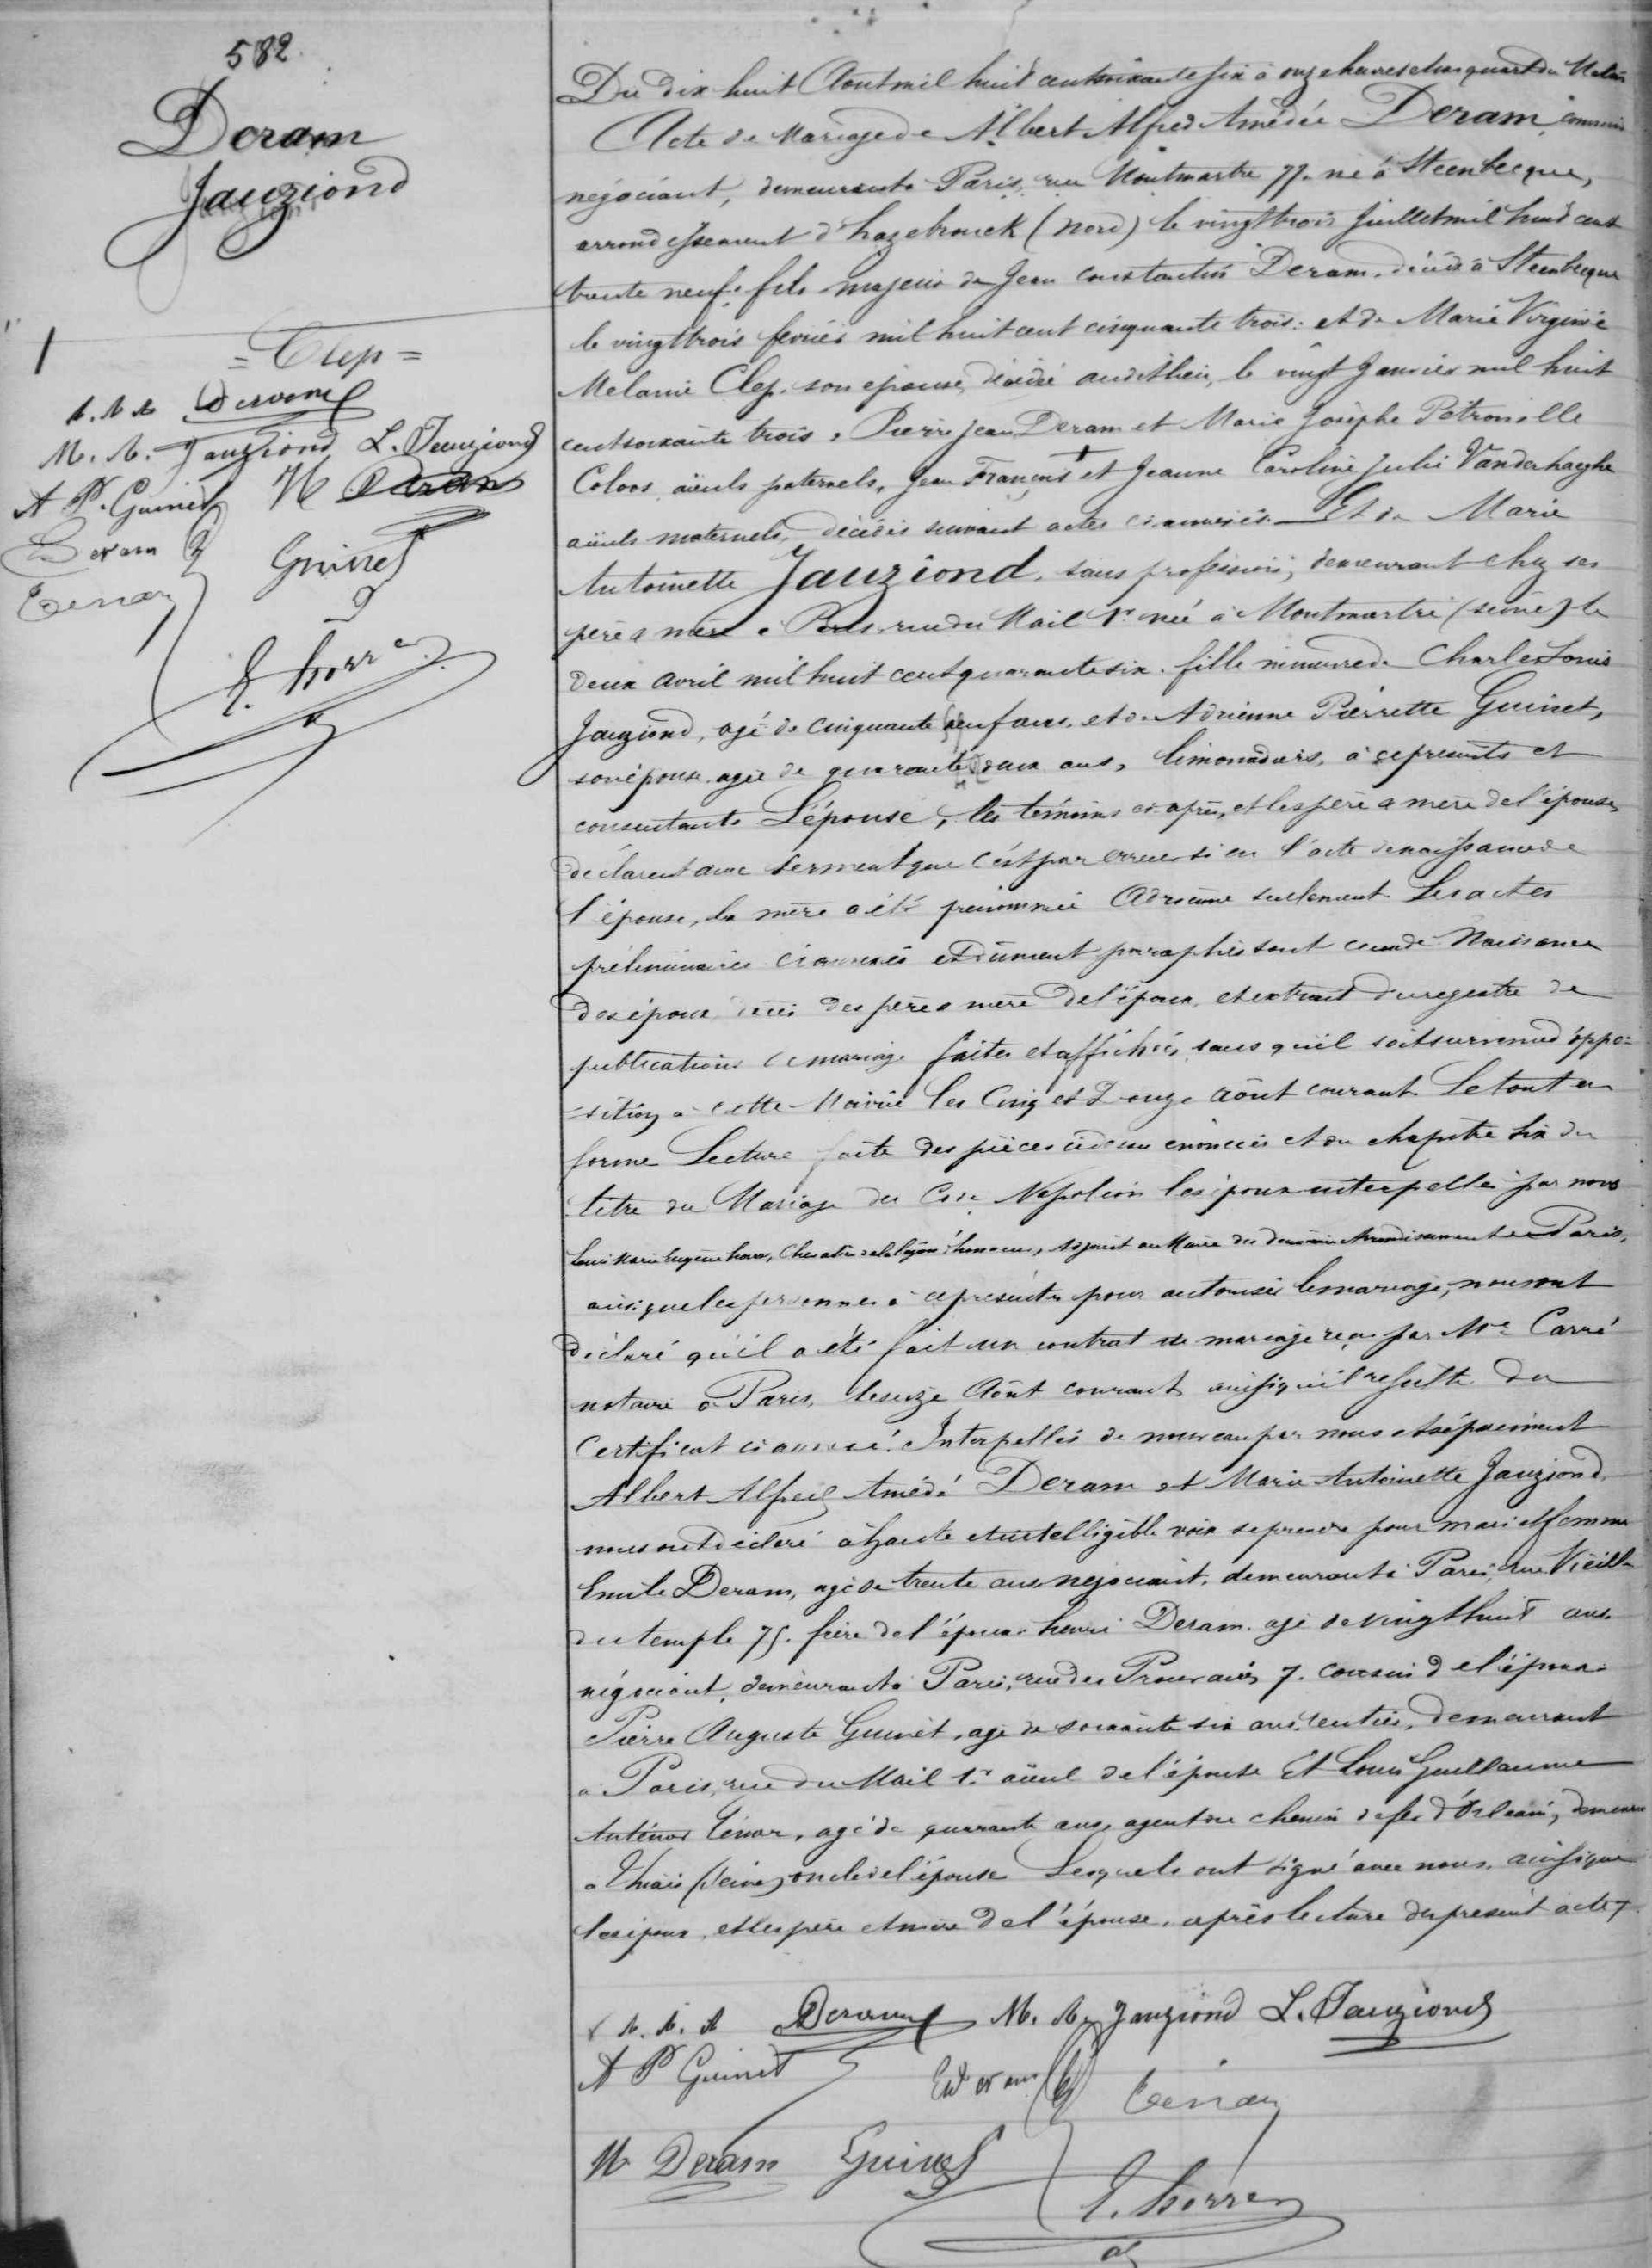 582
Deram
Jauziond
= Clep =
A. A. A Deram
M. A. Jauziond L. Jauziond
A P. Guinet H Deram
E Deram Guinet
Ténar
E. Horrer
Du dix huit Aout mil huit cent soixante six à onze heures et un quart du Matin
Acte de Mariage de Albert Alfred Amédée Deram, commis
négociant, demeurant à Paris, rue Montmartre 77. né à Steenbecque,
arrondissement d'hazebrouck (Nord) le vingt trois Juillet mil huit cent
trente neuf. fils majeur de Jean Constantin Deram, décédé à Steenbecque
le vingt trois fevrier mil huit cent cinquante trois: et de Marie Virginie
Melanie Clep. son epouse, décédée audit lieu, le vingt Janvier mil huit
cent soixante trois, Pierre Jean Deram et Marie Josèphe Pétronille
Coloos, aïeuls paternels, Jean François + et Jeanne Caroline Julie Vanderhaeghe
aïeuls maternels, décédés suivant actes ci annexés. Et de Marie
Antoinette Jauziond. sans profession, demeurant chez ses
père & mère à Paris, rue du Mail 1er née à Montmartre (Seine) le
deux avril mil huit cent quarante six. fille mineure de Charles Louis
Jauziond, agé de cinquante neuf ans. et de Adrienne Pierrette Guinet,
son épouse agée de quarante deux ans, limonadiers, à ce présents et
consentants L'épouse, les témoins ci-après, et les père & mère de l'épouse,
déclarent avec serment que c'est par erreur si en l'acte de naissance de
l'épouse, la mère a été prénommée Adrienne seulement Les actes
préliminaires ci annexés et dûment paraphés sont ceux de Naissance
des époux décès des père & mère de l'époux, et extrait du registre de
publications de mariage faites et affichées, sans qu'il soit survenu d'oppo=
=sition, à cette Mairie les Cinq et Douze août courant. Le tout en
forme Lecture faite des pièces ci dessus énoncées et du chapitre six du
titre du Mariage du Code Napoléon les époux interpellés par nous
Louis Marie Eugène horrer, Chevalier de la légion d'honneur, Adjoint au Maire du deuxième Arrondissement de Paris,
ainsi que les personnes à ce présentes pour autoriser le mariage, nous ont
déclaré qu'il a été fait un contrat de mariage reçu par Me Carré
notaire à Paris, le seize Août courant ainsi qu'il résulte du
Certificat ci annexé. Interpellés de nouveau par nous et séparément
Albert Alfred Amédé Deram et Marie Antoinette Jauziond,
nous ont déclaré à haute et intelligible voix se prendre pour mari et femme
Emile Deram, agé de trente ans negociant, demeurant à Paris, rue Vieille
du temple 75. frère de l'époux henri Deram. agé de vingt huit ans
négociant, demeurant à Paris, rue des Prouvaires 7. cousin de l'époux.
Pierre Auguste Guinet, agé de soixante six ans, rentier, demeurant
à Paris, rue du Mail 1er aïeul de l'épouse Et Louis Guillaume
Anténor Ténar, agé de quarante ans, agent du chemin de fer d'Orléans, demeurant
à Thiais (Seine) oncle de l'épouse Lesquels ont signé avec nous, ainsi que
les époux, et les père et mère de l'épouse. après lecture du présent acte /.
A. A. A Deram M. A. Jauziond L. Jauziond
A P Guinet E Deram Ténar
H Deram Guinet
E. Horrer